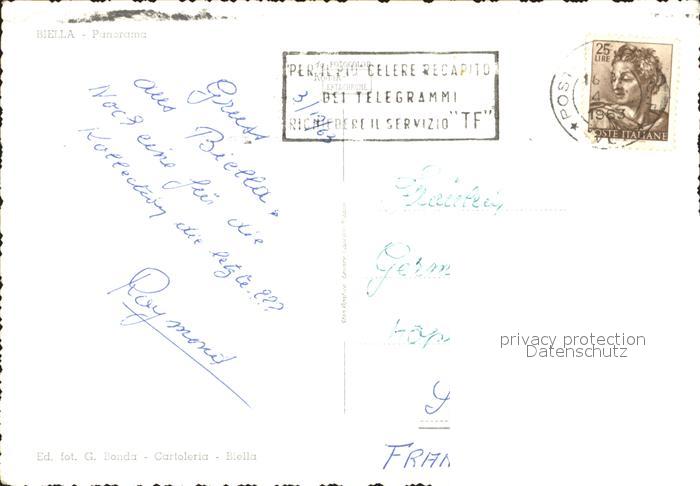 BIELLA - Panorama
PER IL PIU' CELERE RECAPITO
DEI TELEGRAMMI
RICHIEDERE IL SERVIZIO "TF"
25
LIRE
POSTE ITALIANE
1963
3/
Gruss
aus Biella.
Noch eine für die
Kollection die letzte..???
Raymond
Germ
FRAN
privacy protection
Datenschutz
Ed. fot. G. Bonda - Cartoleria - Biella